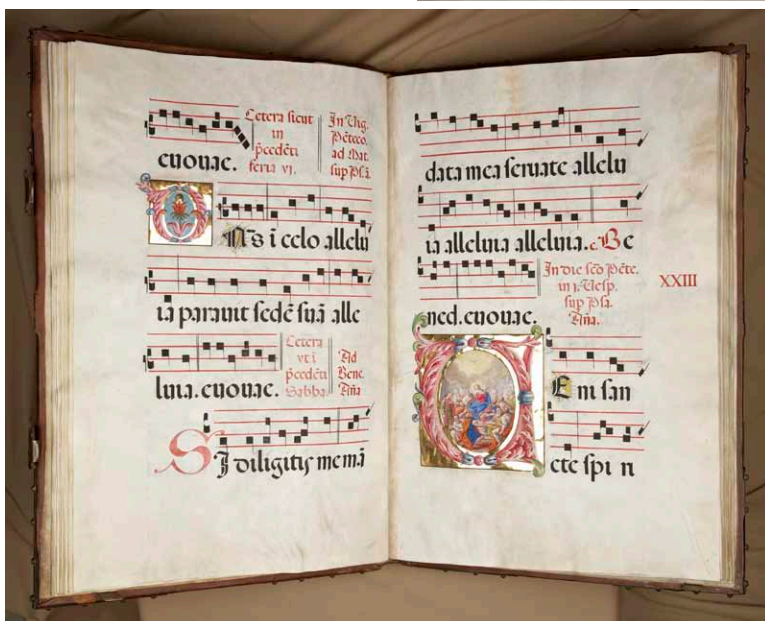 euouae.
Cetera sicut
in
p̄cedēti
feria vi.
In Vig.
Pēteco.
ad Mat.
sup Ps.ā.
Dn̄s i celo allelu
ia parauit sedē suā alle
luia.euouae.
Cetera
vt ī
p̄cedēti
Sabba.
Ad
Bene.
Añā
Si diligitis me mā
data mea seruate allelu
ia alleluia alleluia.c.Be
ned.euouae.
In die sc̄o Pēte.
in j. Vesp.
sup Psa.
Añā.
XXIII
Veni san
cte spi ri